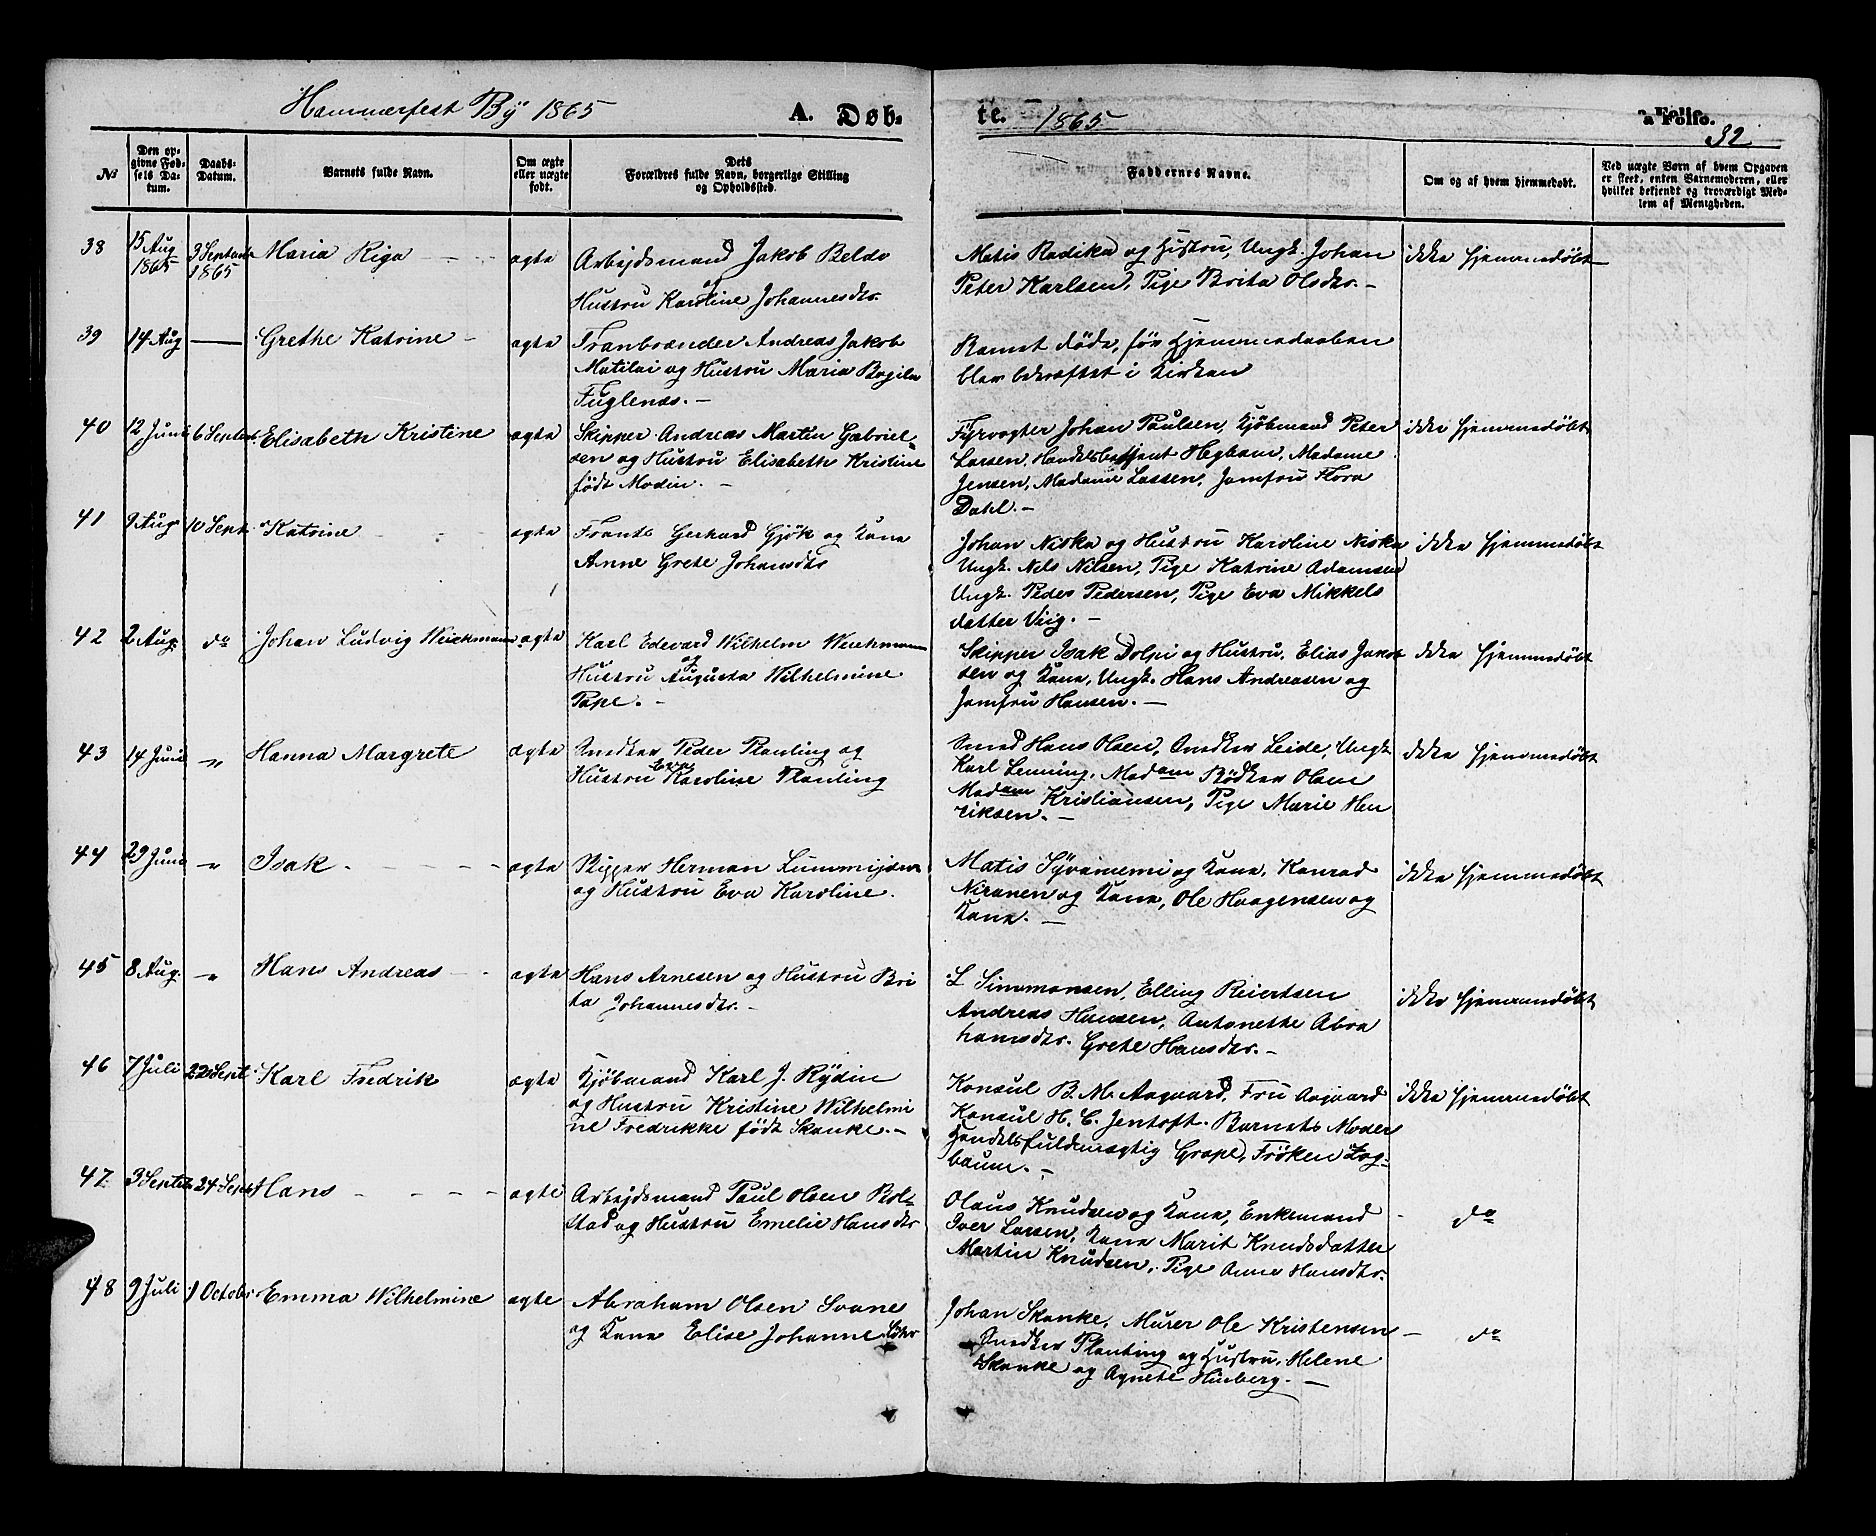 Hammerfest By 1865
A. Døb-
te. 1865
a Folio.
32
No
Den op-
givne Fød-
sels Da-
tum.
Daabs-
Datum.
Barnets fulde Navn.
Om ægte
eller uægte
født.
Dets
Forældres fulde Navn, borgerlige Stilling
og Opholdssted.
Faddernes Navne.
Om og af hvem hjemmedøbt.
Ved uægte Børn af hvem Opgaven
er skeet, enten Barnemoderen, eller
hvilket bekjendt og troværdigt Med-
lem af Menigheden.
38 15 Aug 1865 3 September 1865 Maria Riga ægte
Arbejdsmand Jakob Beldo
og
Hustru Karoline Johannesdtr.
Matis Radika og Hustru, Ungk. Johan
Peter Karlsen, Pige Brita Olsdtr. -
ikke hjemmedøbt
39 14 Aug — Grethe Katrine - ægte
Tranbrænder Andreas Jakob
Matilai og Hustru Maria
Fuglenæs. -
Barnet døde, før Hjemmedaaben
blev bekræftet i Kirken
40 12 Juni 6 Septbr. Elisabeth Kristine ægte
Skipper Andreas Martin Gabriel-
sen og Hustru Elisabeth Kristine
født Modin. -
Fyrvogter Johan Paulsen, Kjøbmand Peter
Larsen, Handelsbetjent Hegbom, Madame
Jensen, Madame Lassen, Jomfru Flora
Dahl. -
ikke hjemmedøbt
41 9 Aug 10 Sept. Katrine ægte
Frants Gerhard Gjøk og Kone
Anne Grete Johansdtr
Johan Niska og Hustru Karoline Niska
Ungk. Nils Nilsen, Pige Katrine Adamsen
Ungk. Peder Pedersen, Pige Eva Mikkels
datter Viig. -
ikke hjemmedøbt
42 2 Aug. do Johan Ludvig Weichmann ægte
Karl Edevard Wilhelm Weichmann
og
Hustru Augusta Wilhelmine
Pape. -
Skipper Isak Dolpi og Hustru, Elias Jakob
sen og Kone, Ungk. Hans Andreasen og
Jomfru Hansen. -
ikke hjemmedøbt
43 14 Juni " Hanna Margrete ægte
Snedker Peder Planting og
Eva
Hustru Karoline Planting
Smed Hans Olsen, Snedker Leide, Ungk.
Karl Lenning, Madam Bødker Olsen
Madam Kristiansen, Pige Marie Hen
riksen. -
ikke hjemmedøbt
44 29 Juni " Isak ægte
Skipper Herman
og Hustru Eva Karoline.
Matis og Kone, Konrad
Niranen og Kone, Ole Haagensen og
Kone. -
ikke hjemmedøbt
45 8 Aug. " Hans Andreas ægte
Hans Arnesen og Hustru Bri
ta Johannesdtr. -
L Simmonsen, Elling Reiertsen
Andreas Hansen, Antonethe Abra
hamsdtr. Grete Hansdtr. -
ikke hjemmedøbt
46 7 Juli 22 Sept Karl Fredrik ægte
Kjøbmand Karl J. Rydin
og Hustru Kristine Wilhelmi
ne Fredrikke født Skanke. -
Konsul B. M. Aagaard, Fru Aagaard
Konsul H. C. Jentoft. Barnets Moder
Handelsfuldmægtig Grape, Frøken Zog-
baum. -
ikke hjemmedøbt
47 3 Septbr 24 Sept Hans ægte
Arbejdsmand Paul Olsen Bol-
stad og Hustru Emelie Hansdtr
Olaus Knudsen og Kone, Enkemand
Iver Larsen, Kone Marit Knudsdatter
Martin Knudsen, Pige Anne Hansdtr.
- do
48 9 Juli 1 Octobr Emma Wilhelmine ægte
Abraham Olsen Svane
og Kone Elise Johanne
Johan Skanke, Murer Ole Kristensen
Snedker Planting og Hustru, Helene
Skanke og Agnete Husberg. -
- do